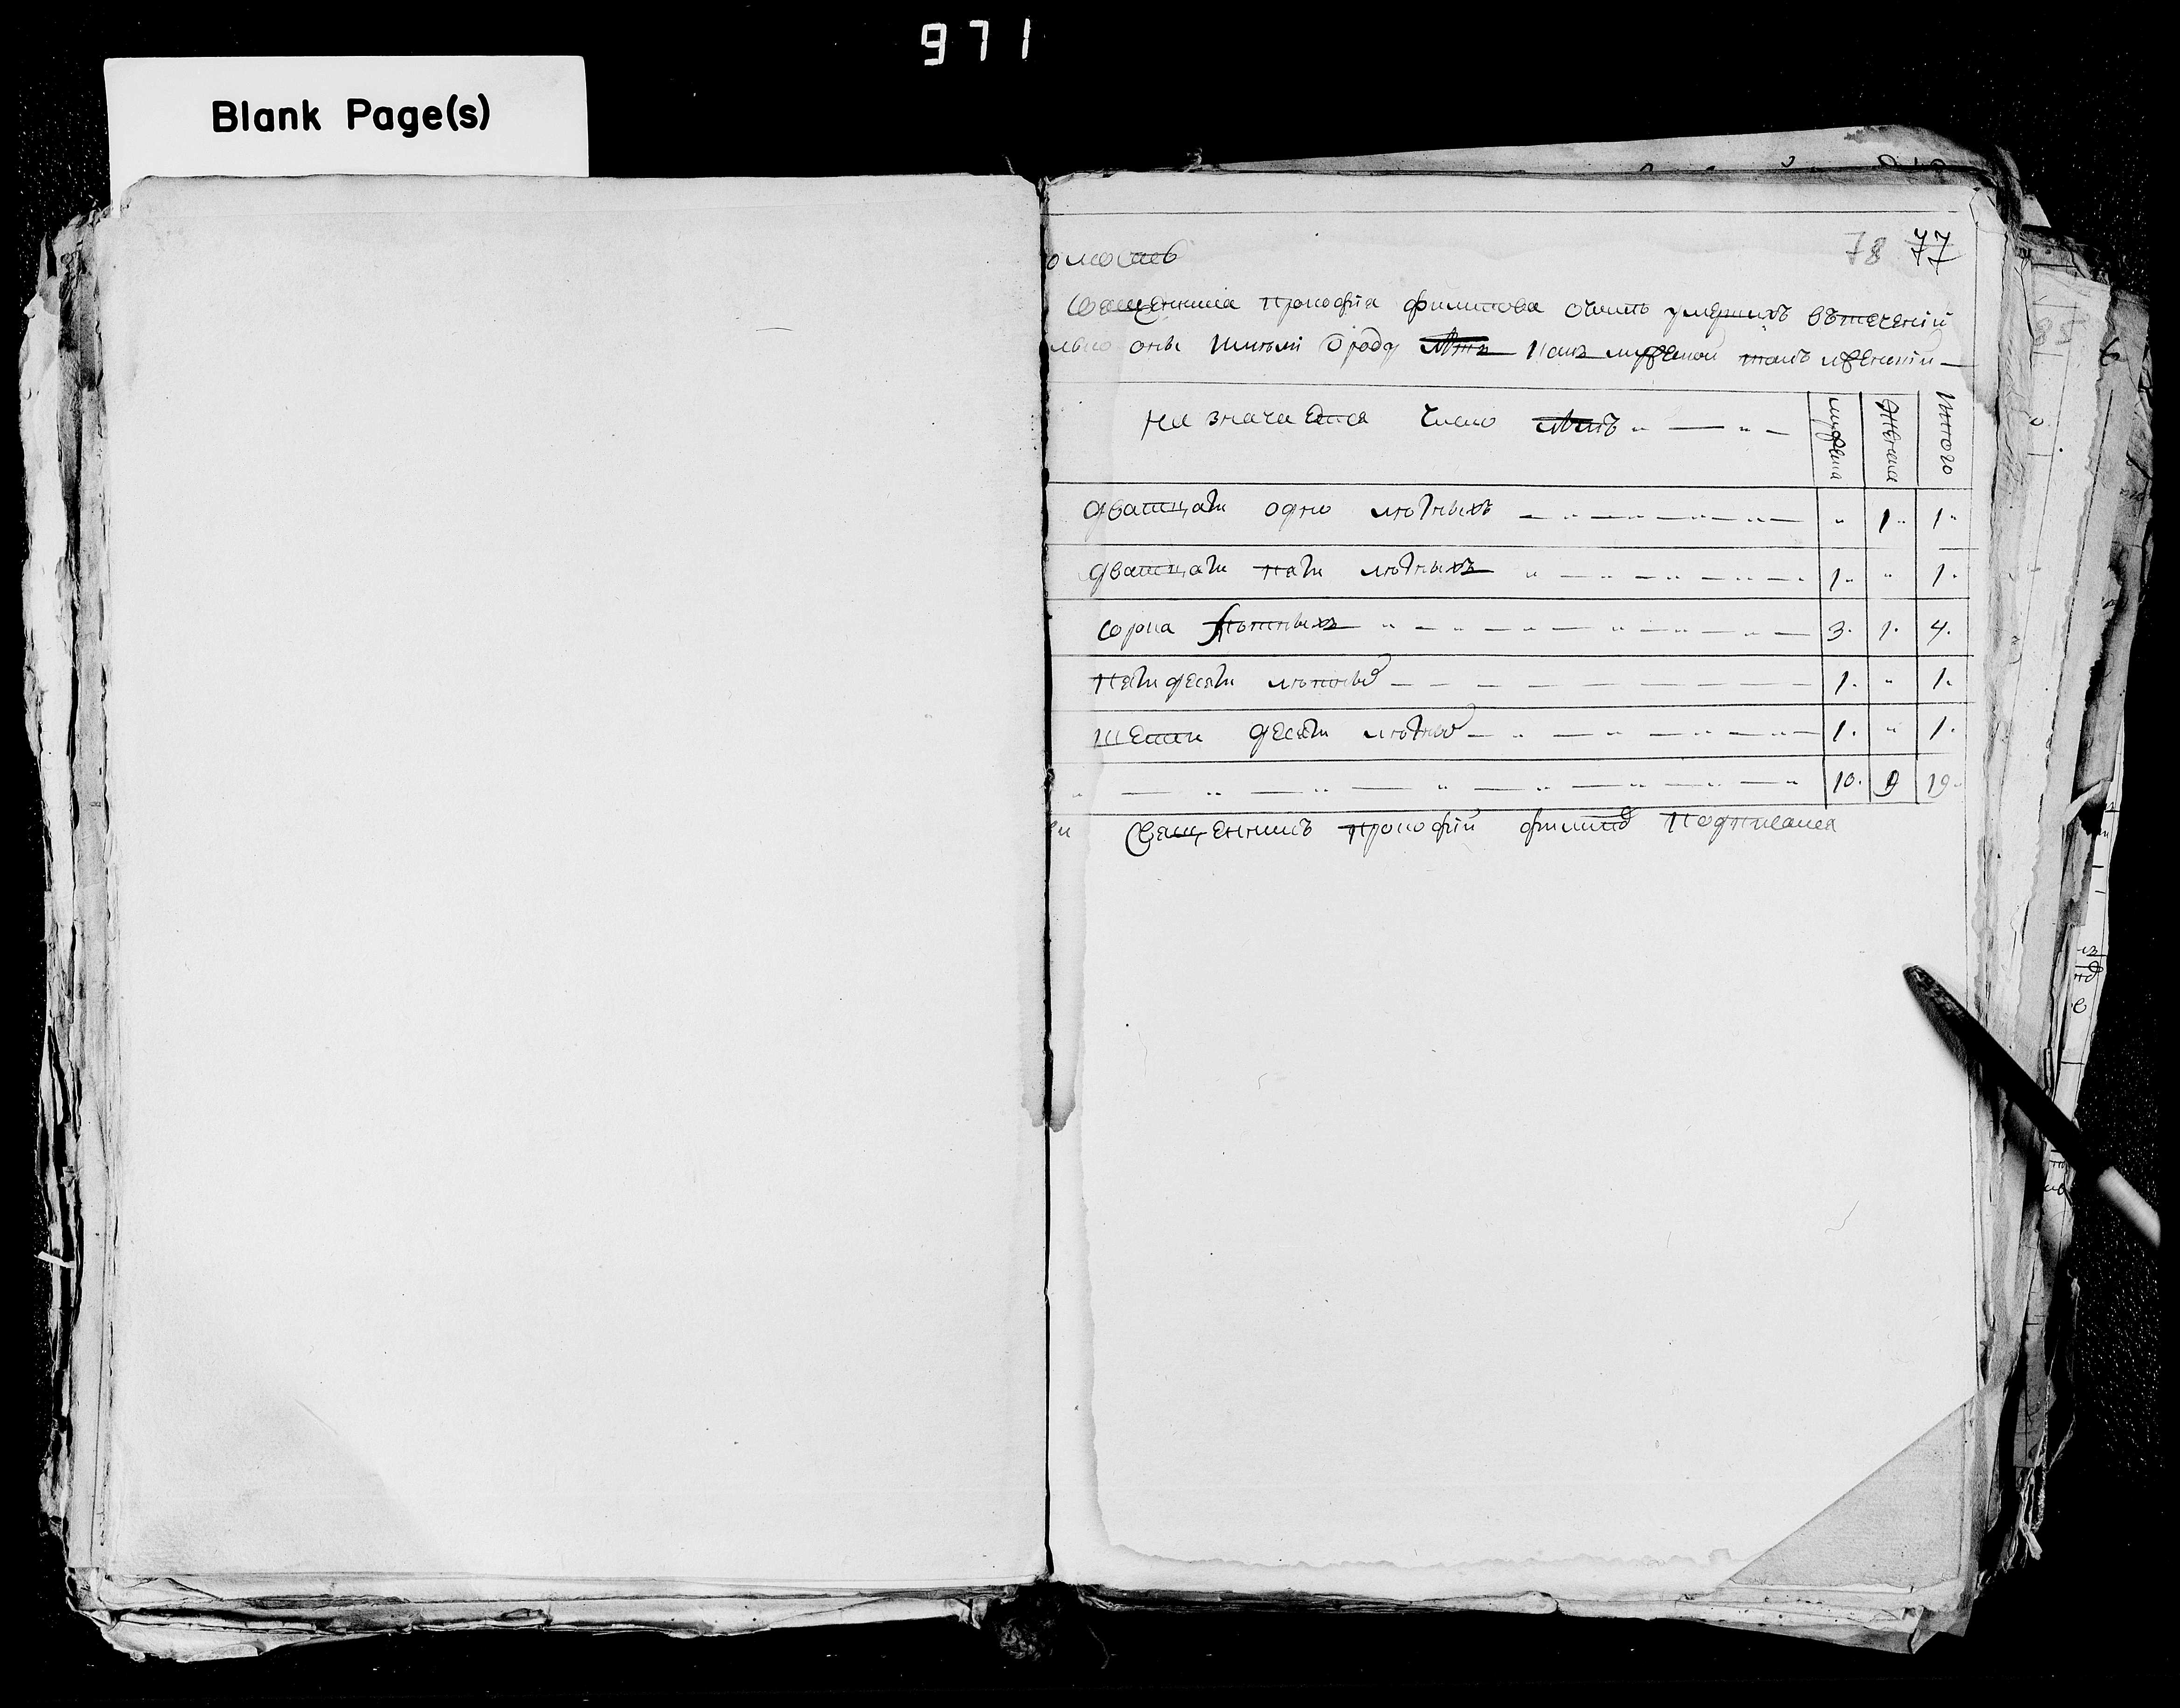 971
Blank Page(s)
78 77
Священника прокофiа филипова о умершихъ втеченiи
имѣли отроду летъ какъ мужеской такъ иженскiи
На значаетца число летъ мужеска Женска Итого
дватцати одно лѣтныхъ " 1 1
дватцати пяти лѣтныхъ 1 " 1
сорка лѣтныхъ 3 1 4
пятидесяти лѣтныхъ 1 " 1
шести десяти лѣтныхъ 1 " 1
10 9 19
Священникъ прокофiй филипов подписался